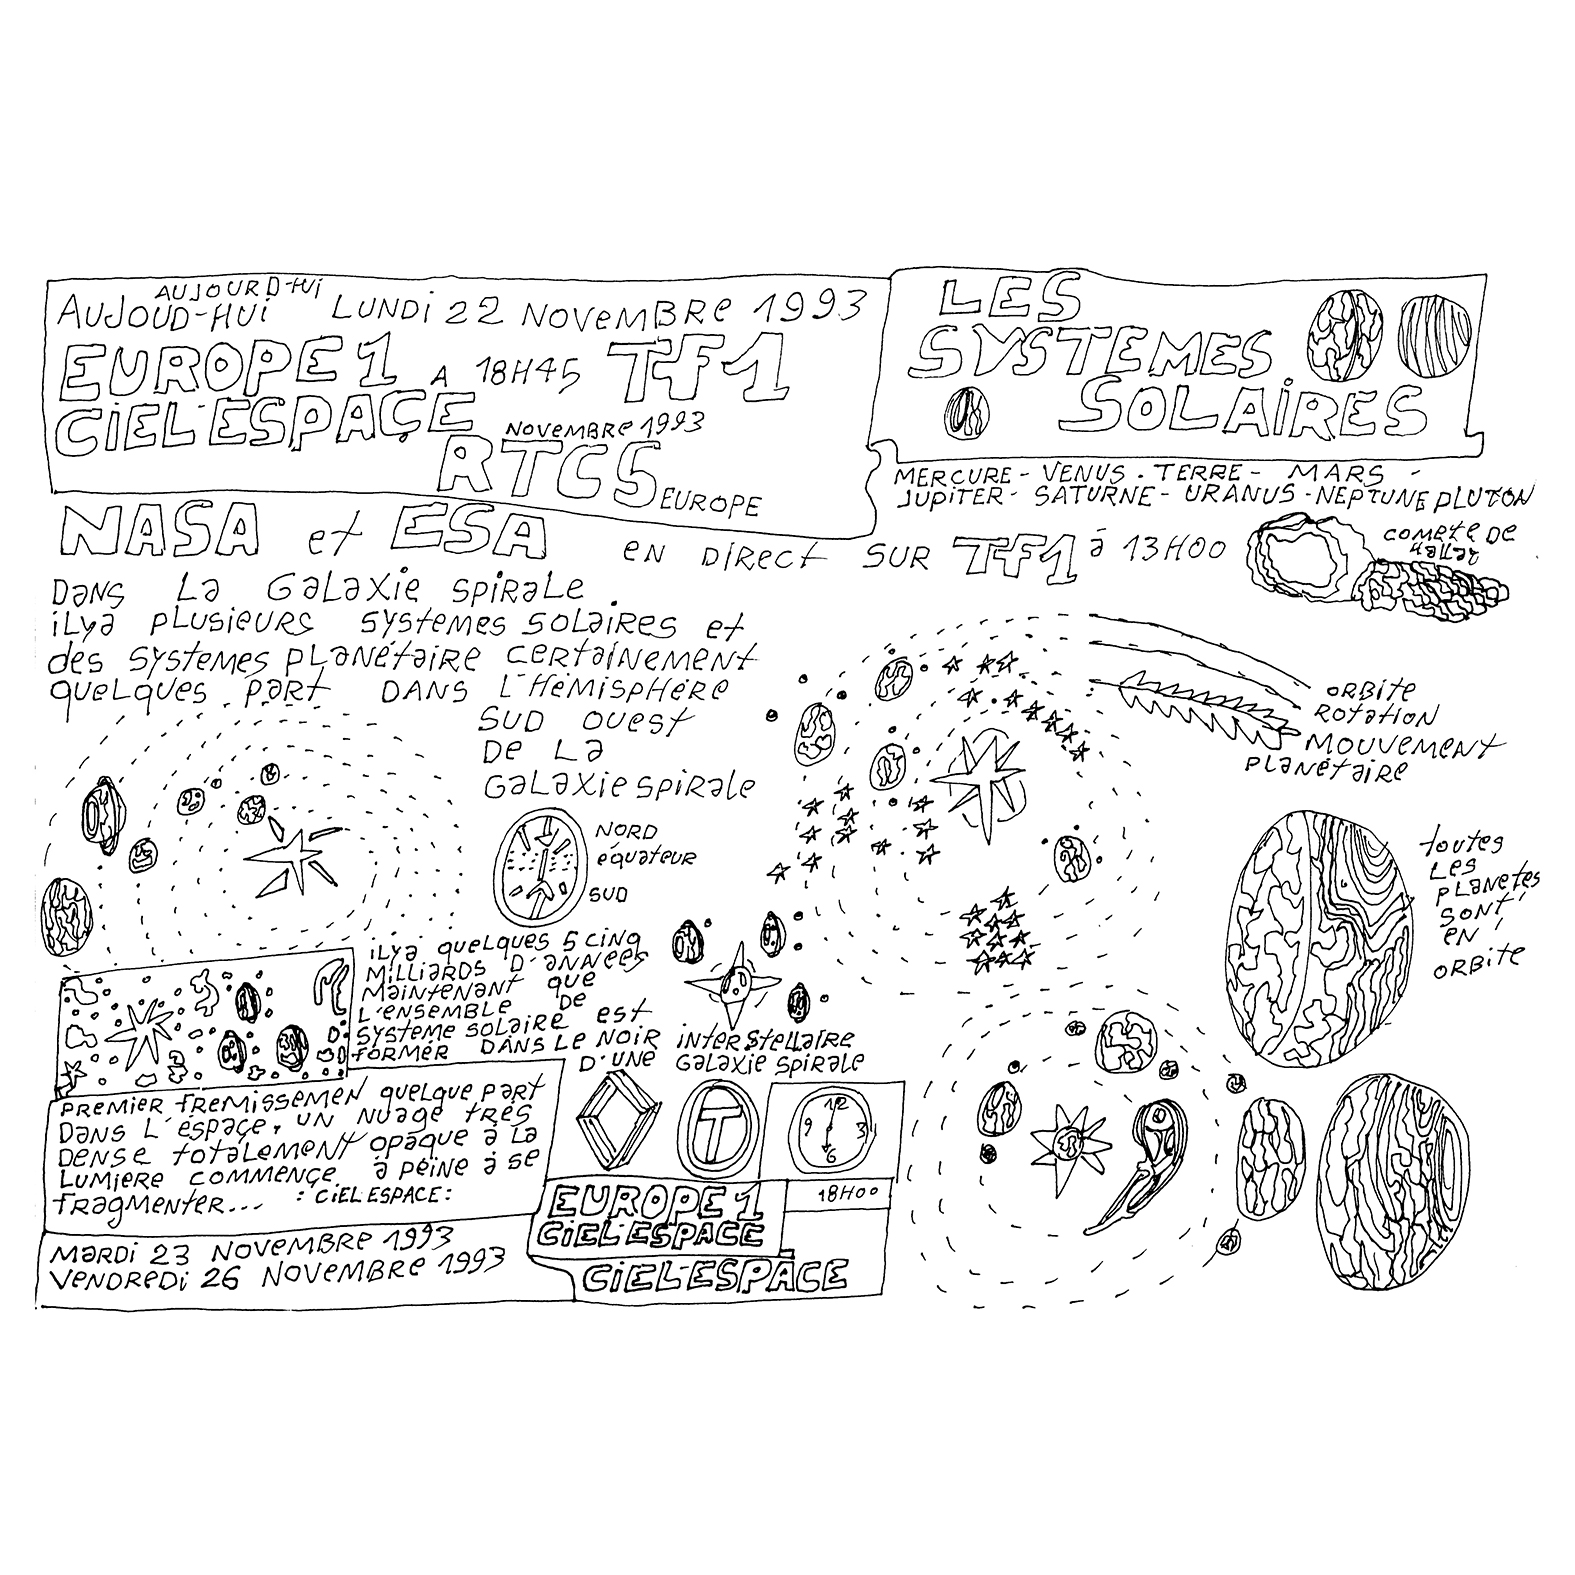 AUJOURD-HUI
AUJOUD-HUI LUNDI 22 NOVEMBRE 1993
EUROPE 1 A 18H45 TF1
CIEL ESPAÇE
NOVEMBRE 1993
RTC5 EUROPE
LES
SYSTEMES
SOLAIRES
MERCURE - VENUS - TERRE - MARS -
JUPITER - SATURNE - URANUS - NEPTUNE PLUTON
NASA et ESA EN DIRECT SUR TF1 à 13H00
COMETE DE
Hallay
DANS LA GALAXIE SPIRALE
ILYA PLUSIEURS SYSTEMES SOLAIRES et
des SYSTEMES PLANÉTAIRE CERTAINEMENT
QUELQUES PART DANS L'HÉMISPHÉRE
SUD OUEST
DE LA
GALAXIE SPIRALE
ORBITE
ROTATION
MOUVEMENT
PLANÉTAIRE
NORD
équateur
SUD
toutes
LES
PLANETES
SONT
EN
ORBITE
ILYA QUELQUES 5 CINQ
MILLIARDS D'ANNÉES
MAINTENANT QUE
L'ENSEMBLE DE
SYSTEME SOLAIRE EST
FORMÉR DANS LE NOIR INTERSTELLAIRE
D'UNE GALAXIE SPIRALE
PREMIER FREMISSEMEN QUELQUE PART
DANS L'ÉSPAÇE, UN NUAGE TRÉS
DENSE TOTALEMENT OPAQUE à LA
LUMIERE COMMENÇE à PEINE à SE
FRAGMENTER... : CIEL ESPACE :
MARDI 23 NOVEMBRE 1993
VENDREDI 26 NOVEMBRE 1993
T
12
9 3
6
18H00
EUROPE 1
CIEL ESPACE
CIEL ESPACE